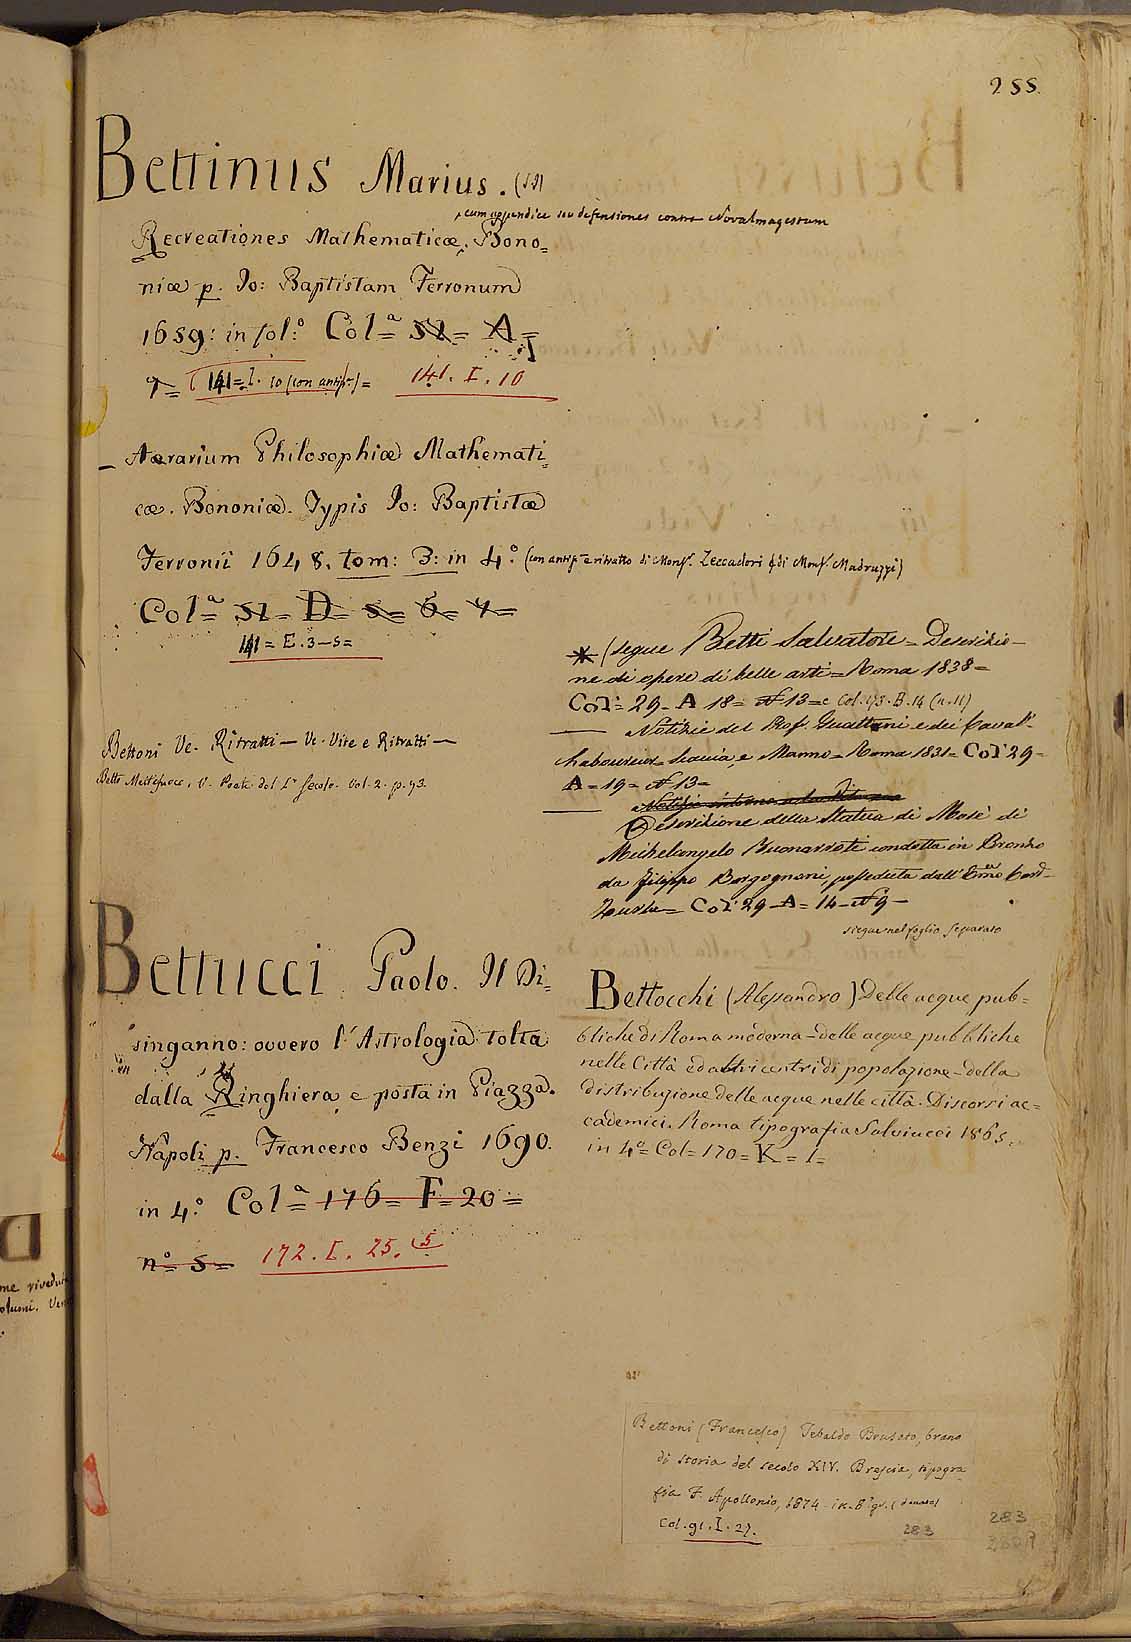 255.
Bettinus Marius.
, cum appendice seu defensiones contra Novalmagestum
Recreationes Mathematicæ. Bono=
niæ p. Io: Baptistam Ferronum
1659: in fol:° Col.ª= 52= A=
7= 141=I. 10 (con antip.)= 141. I. 10
– Aerarium Philosophiæ Mathemati=
cæ. Bononiæ. Typis Io: Baptistæ
Ferronii 1648. tom: 3: in 4.° (con antip. e ritratto di Mons. Zeccadori e di Mons. Madruzzi)
Col.ª= 52= D= 5= 6= 7=
141= E. 3–5=
Bettoni Ve. Ritratti — Ve. Vite e Ritratti —
Betto Mettefuoco, V. Poeti del I° Secolo. Vol. 2. p. 93.
Bettucci Paolo. Il Di=
singanno: ovvero l'Astrologia tolta
dalla Ringhiera, e posta in Piazza.
Napoli p. Francesco Benzi 1690.
in 4.° Col.ª= 176= F= 20=
n°= 5= 172. I. 25. 5
* (segue Betti Salvatore = Descrizio=
ne di opere di belle arti = Roma 1838=
Col= 29= A 18= N 13= e Col. 173. B. 14 (n. 11)
— Notizie del Prof. Guattani e dei Caval.
Chaboureior Scaccia, e Manno= Roma 1831= Col 29=
A=19= N 13=
Notizie intorno alla
— Descrizione della Statua di Mosè di
Michelangelo Buonarroti condotta in Bronzo
da Filippo Borgognoni, posseduta dall'Emo Card.
Zurla= Col 29= A= 14= N 9=
siegue nel foglio separato
Bettocchi (Alessandro) Delle acque pub=
bliche di Roma moderna= delle acque pubbliche
nelle Città ed altri centri di popolazione= della
distribuzione delle acque nelle città. Discorsi ac=
cademici. Roma tipografia Salviucci 1865.
in 4°= Col= 170= K= 1=
Bettoni (Francesco) Tebaldo Brusato, brano
di storia del secolo XIV. Brescia, tipogra
fia F. Apollonio, 1874 - in-8° gr. (donato)
Col. 91. I. 27.
283
283